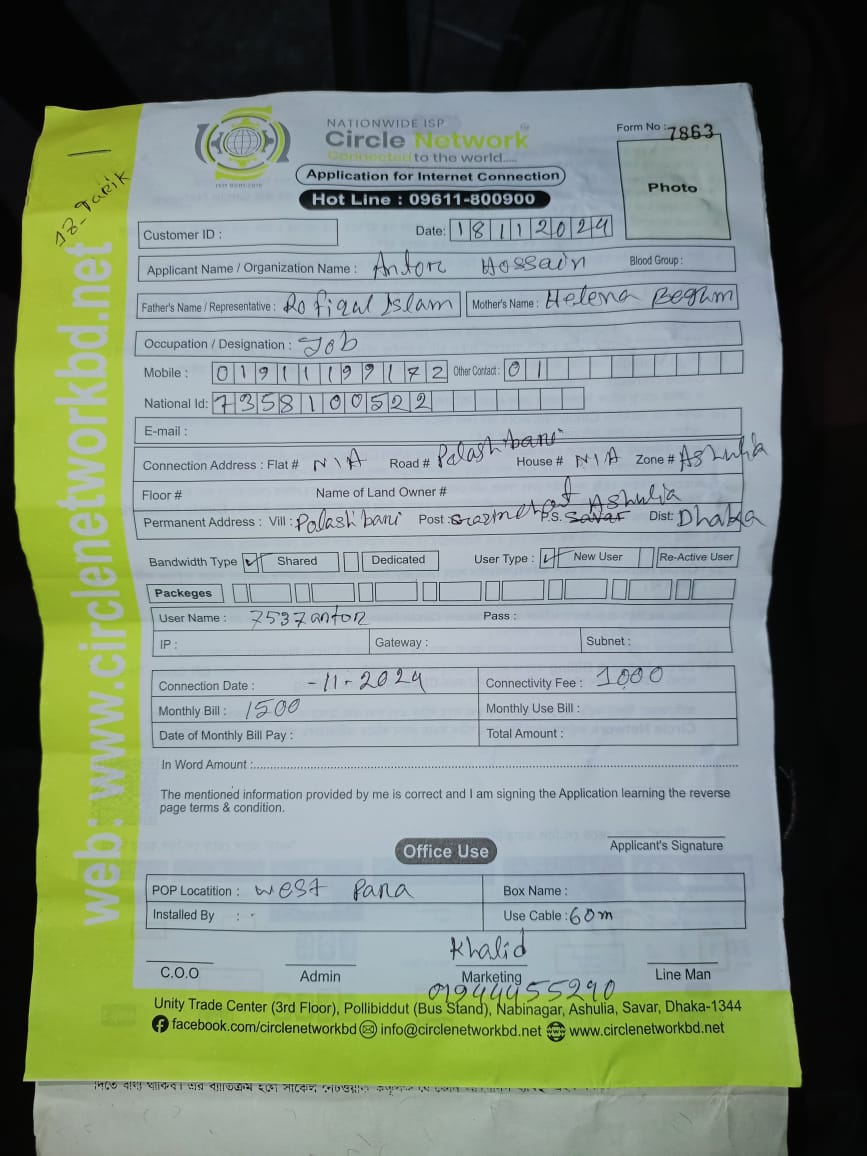 NATIONWIDE ISP
Circle Network
Connected to the world.....
Application for Internet Connection
Hot Line : 09611-800900
Form No : 7863
Photo
13-Tarik
web: www.circlenetworkbd.net
Customer ID :
Date: 18112024
Applicant Name / Organization Name : Anton Hossain Blood Group :
Father's Name / Representative : Rofiqul Islam Mother's Name : Helena Begum
Occupation / Designation : Job
Mobile : 01911199172 Other Contact : 01
National Id: 7358100522
E-mail :
Connection Address : Flat # N/A Road # Palashbari House # N/A Zone # Ashulia
Floor # Name of Land Owner #
Permanent Address : Vill : Palashbari Post : P.S. Savar Ashulia Dist: Dhaka
Bandwidth Type Shared Dedicated User Type : New User Re-Active User
Packeges
User Name : 7537anton Pass :
IP : Gateway : Subnet :
Connection Date : -11-2024 Connectivity Fee : 1000
Monthly Bill : 1500 Monthly Use Bill :
Date of Monthly Bill Pay : Total Amount :
In Word Amount :
The mentioned information provided by me is correct and I am signing the Application learning the reverse
page terms & condition.
Applicant's Signature
Office Use
POP Locatition : west Para Box Name :
Installed By : Use Cable : 60m
Khalid
C.O.O Admin Marketing Line Man
01944455290
Unity Trade Center (3rd Floor), Pollibiddut (Bus Stand), Nabinagar, Ashulia, Savar, Dhaka-1344
facebook.com/circlenetworkbd info@circlenetworkbd.net www.circlenetworkbd.net